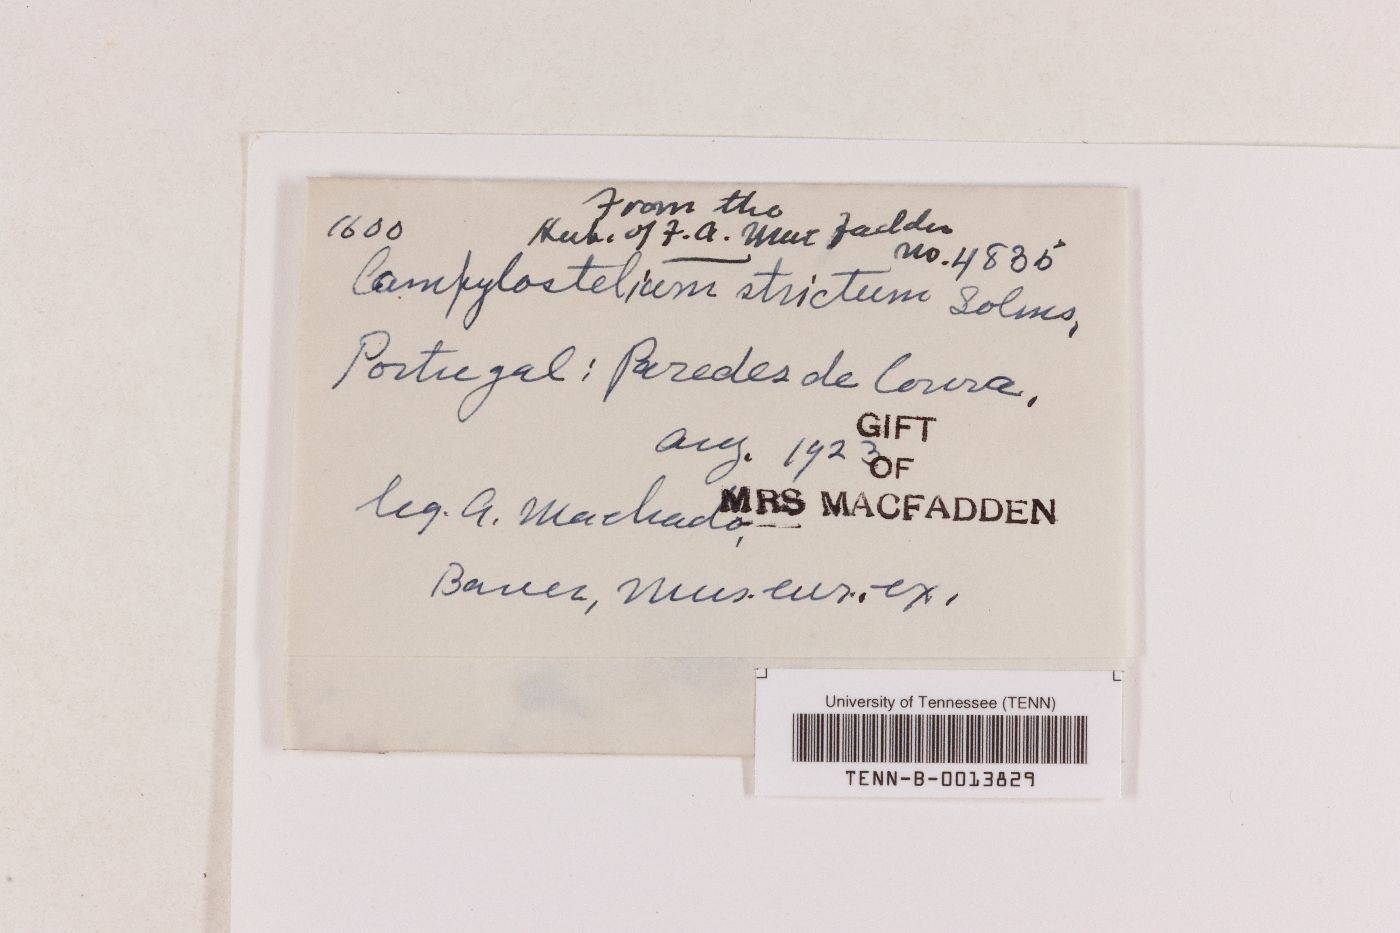 From the
1600 Herb. of F. A. MacFadden
no. 4835
Campylostelium strictum Solms,
Portugal: Paredes de Coura,
Aug. 1923
GIFT
OF
MRS MACFADDEN
leg. A. Machado,
Bauer, Mus. eur. ex.
University of Tennessee (TENN)
TENN-B-0013829